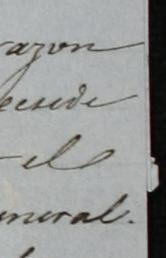 razon
ecside
el
eneral.